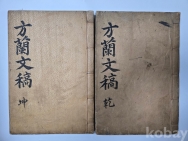 方蘭文稿
乾
方蘭文稿
坤
kobay